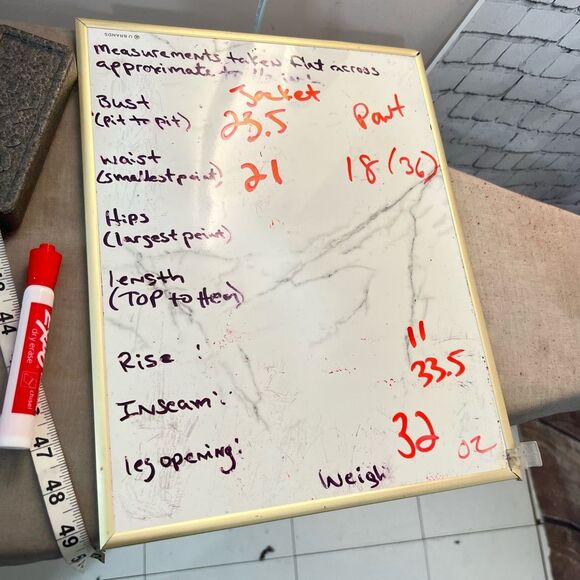 U BRANDS
Measurements taken flat across
approximate to
Jacket Pant
Bust
(pit to pit) 23.5
waist
(smallest point) 21 18 (36)
Hips
(largest point)
length
(TOP to Hem)
Rise : 11
Inseam: 33.5
leg opening:
32 oz
Weigh
EXPO
dry erase
chisel
44
47
48
49